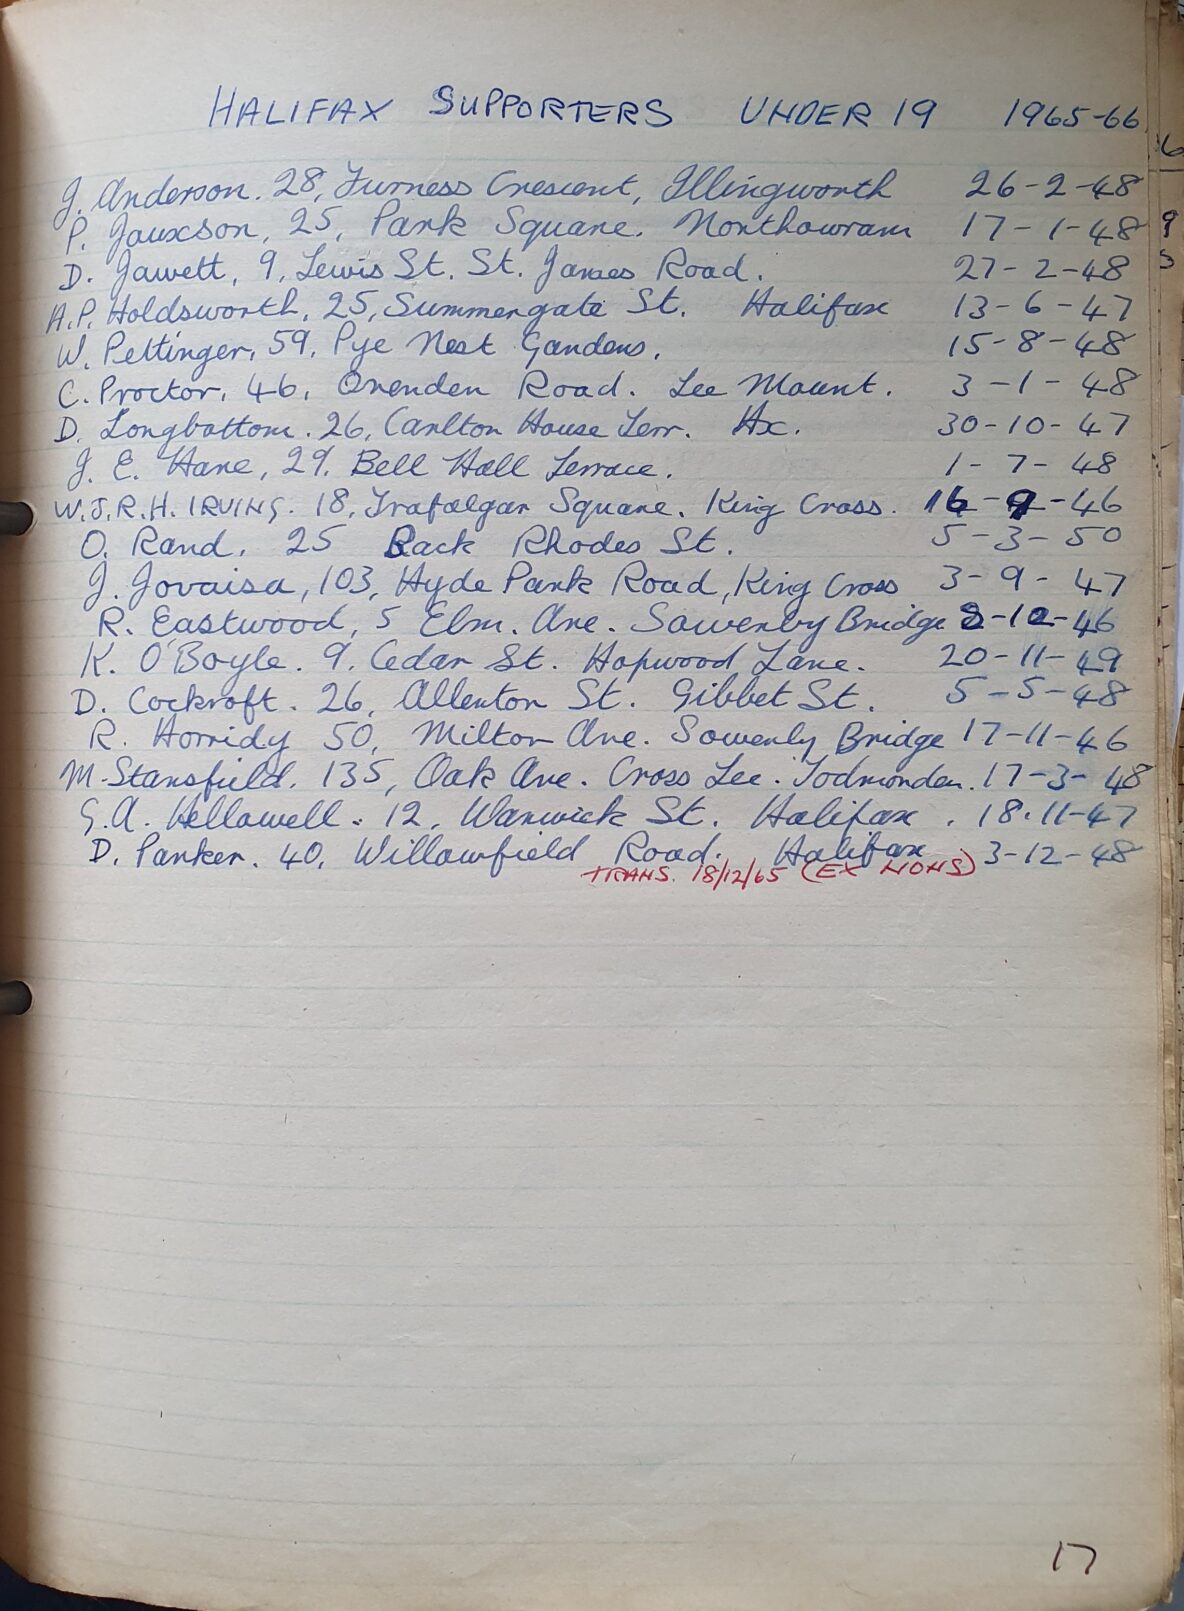 HALIFAX SUPPORTERS UNDER 19 1965-66
J. Anderson. 28, Furness Crescent, Illingworth 26-2-48
P. Jauxson, 25, Park Square. Northowram 17-1-48
D. Jowett, 9, Lewis St. St. James Road. 27-2-48
A.P. Holdsworth, 25, Summergate St. Halifax 13-6-47
W. Pettinger, 59, Pye Nest Gardens. 15-8-48
C. Proctor, 46, Ovenden Road. Lee Mount. 3-1-48
D. Longbottom. 26, Carlton House Terr. Hx. 30-10-47
J. E. Hare, 29. Bell Hall Terrace. 1-7-48
W.J.R.H. IRVING. 18, Trafalgar Square. King Cross. 16-9-46
O. Rand. 25 Back Rhodes St. 5-3-50
J. Jovaisa, 103, Hyde Park Road, King Cross 3-9-47
R. Eastwood, 5 Elm. Ave. Sowerby Bridge -10-46
K. O'Boyle. 9. Cedar St. Hopwood Lane. 20-11-49
D. Cockroft. 26, Allerton St. Gibbet St. 5-5-48
R. Horridy 50, Milton Ave. Sowerby Bridge 17-11-46
M. Stansfield. 135, Oak Ave. Cross Lee. Todmorden. 17-3-48
G.A. Hellowell. 12, Warwick St. Halifax. 18.11-47
D. Parker. 40, Willowfield Road. Halifax 3-12-48
TRANS. 18/12/65 (EX NONS)
17